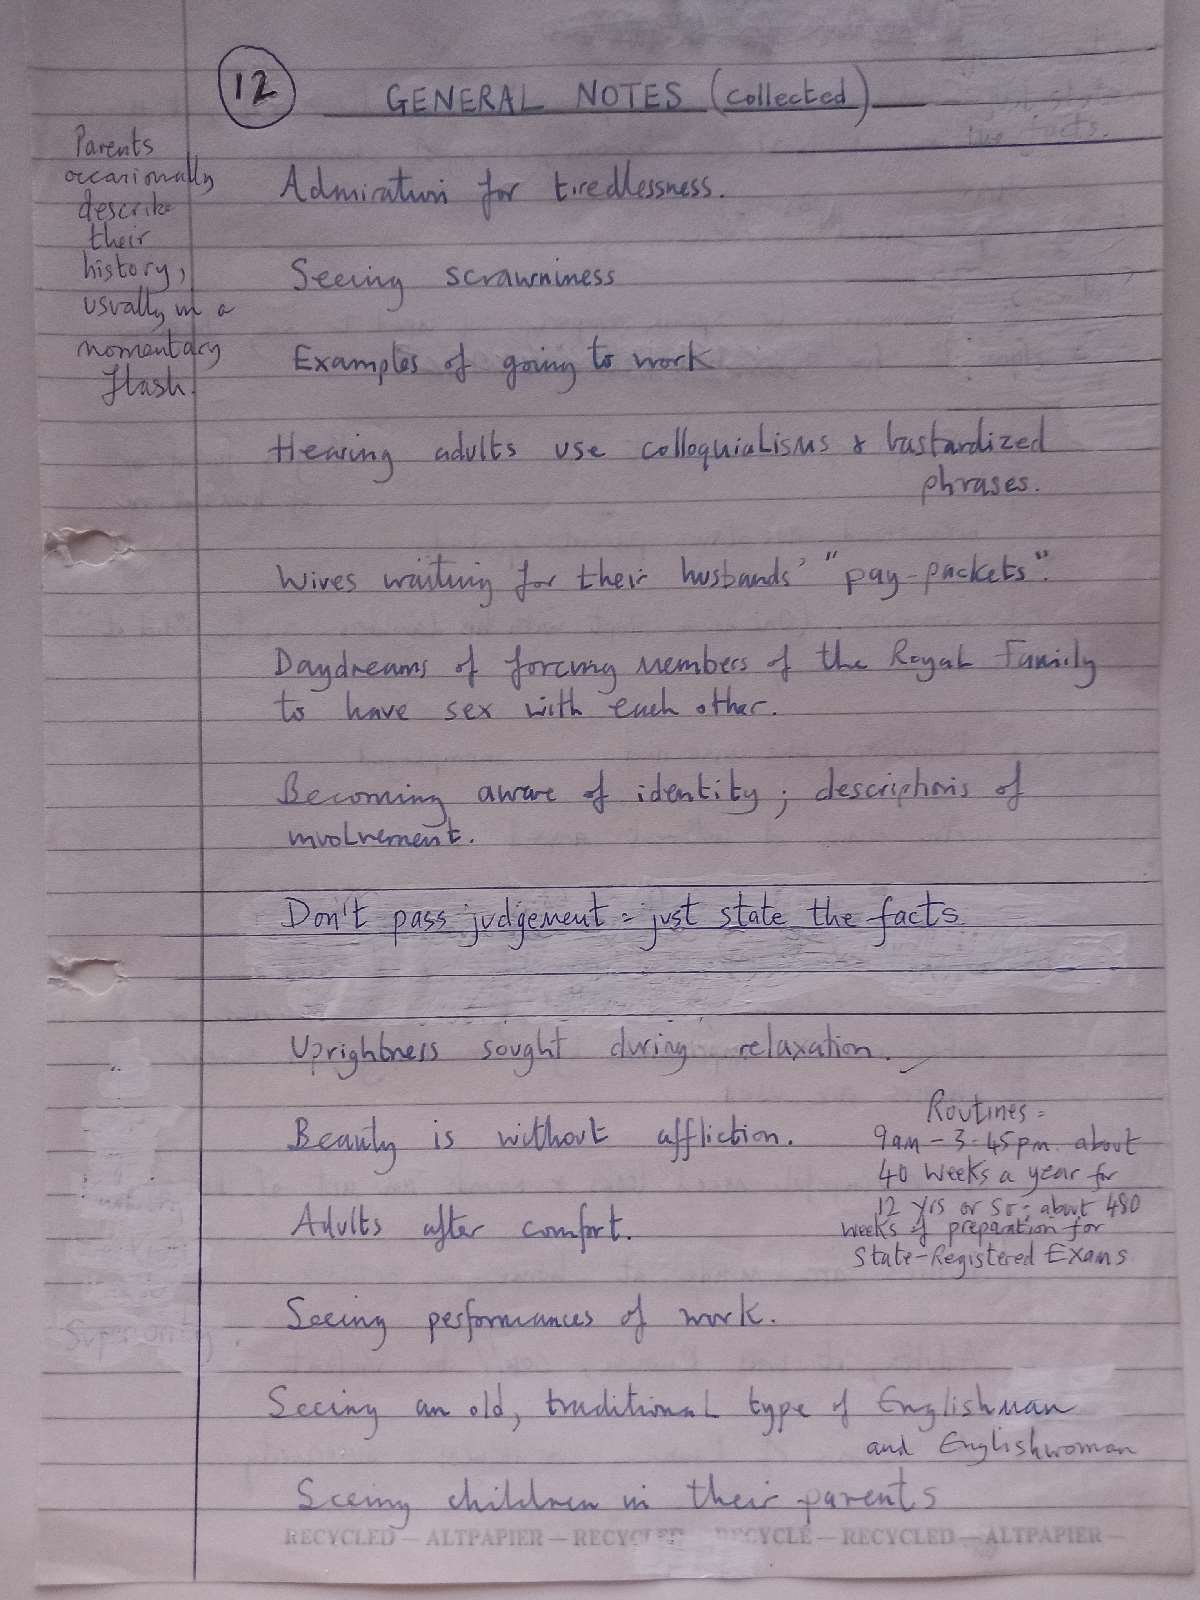 12
GENERAL NOTES (collected)
Parents
occasionally
describe
their
history,
usually in a
momentary
flash.
Admiration for tiredlessness.
Seeing scrawniness
Examples of going to work
Hearing adults use colloquialisms & bastardized
phrases.
Wives waiting for their husbands' "pay-packets".
Daydreams of forcing members of the Royal Family
to have sex with each other.
Becoming aware of identity; descriptions of
involvement.
Don't pass judgement = just state the facts
Uprightness sought during relaxation.
Beauty is without affliction.
Routines =
9am - 3.45pm about
40 weeks a year for
12 yrs or so; about 480
weeks of preparation for
State-Registered Exams
Adults after comfort.
Seeing performances of work.
Superiority.
Seeing an old, traditional type of Englishman
and Englishwoman
Seeing children in their parents
RECYCLED — ALTPAPIER — RECYCLED RECYCLE — RECYCLED — ALTPAPIER —